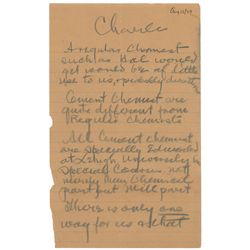 Charles
A regular Chemist
such as Hal would
get would be of little
use to us, & possibly
Cement Chemist are
quite different from
Regular Chemists
All Cement chemist
are specially Educated
at Lehigh University in
Special Course, not
merely pure Chemistry
part but mill part
There is only one
way for us & that